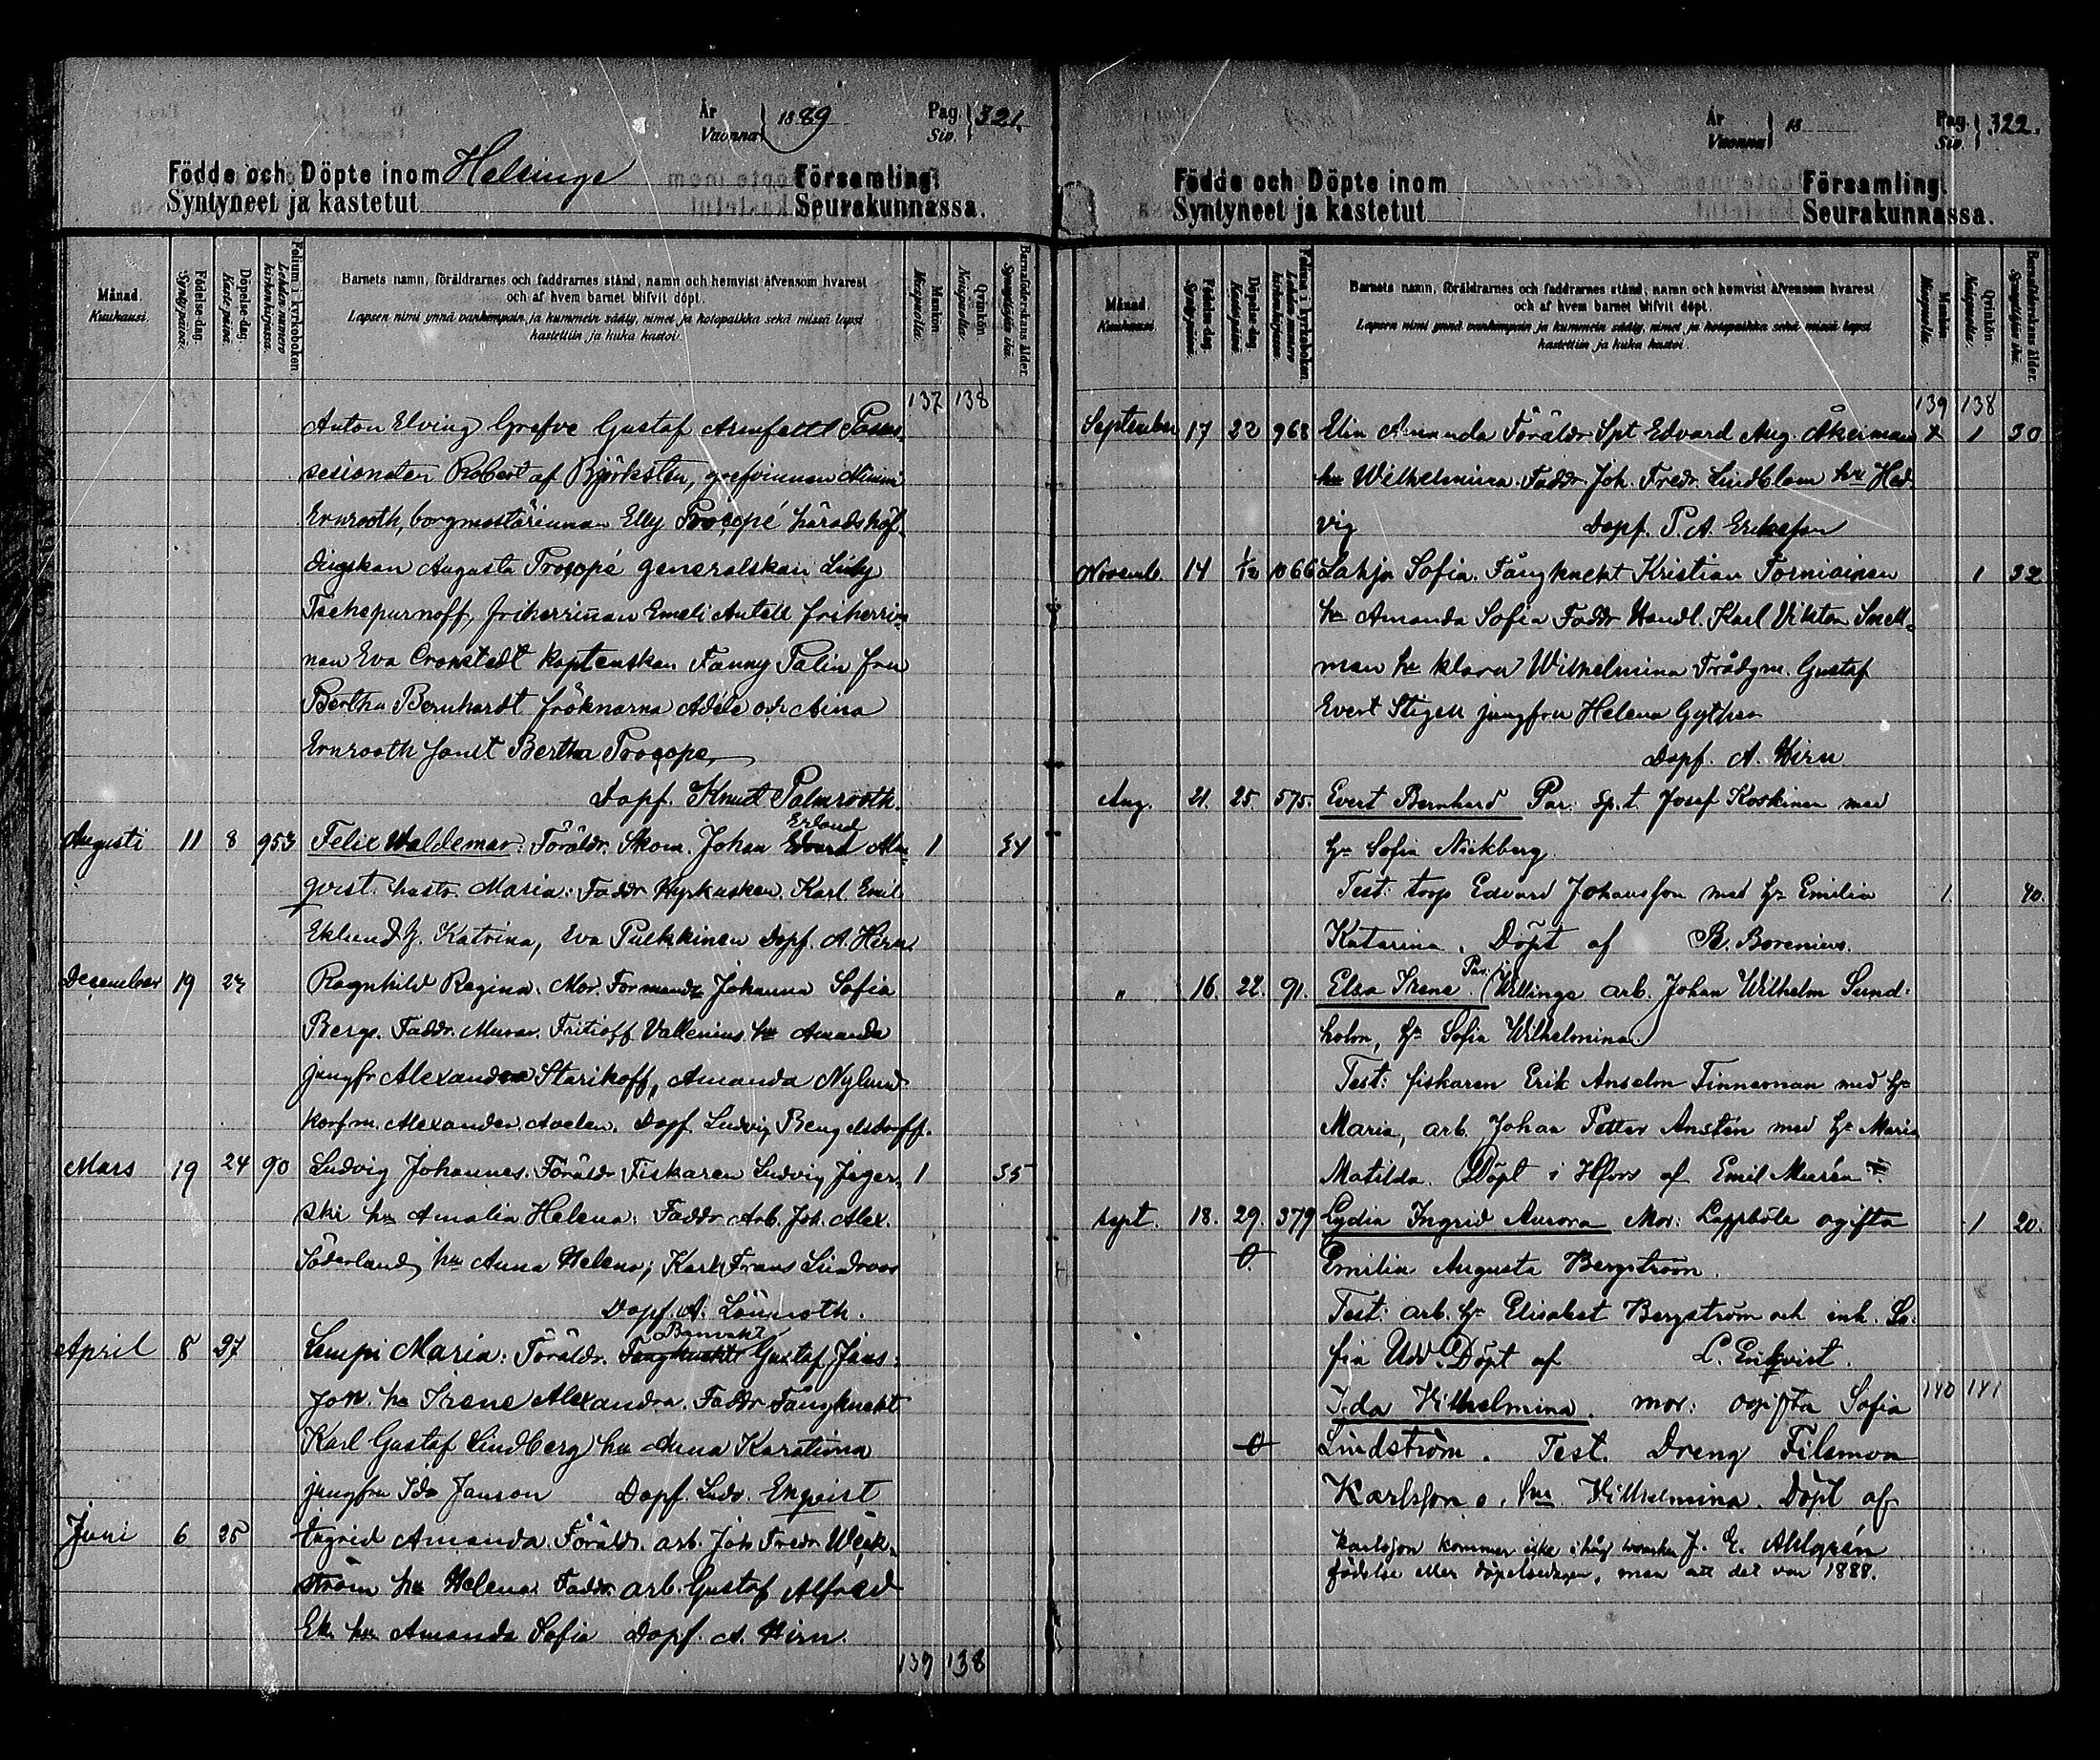 År 1889 Pag. 321.
Vuonna Siv.
Födde och Döpte inom Helsinge Församling
Syntyneet ja kastetut Seurakunnassa.
Månad. Kuukausi.
Födelse-dag. Syntypäivä.
Döpelse-dag. Kastepäivä.
Folium i kyrkoboken. Lehden numero kirkonkirjassa.
Barnets namn, föräldrarnes och faddrarnes stånd, namn och hemvist äfvensom hvarest
och af hvem barnet blifvit döpt.
Lapsen nimi ynnä vanhempain ja kummein sääty, nimet ja kotopaikka sekä missä lapsi
kastettiin ja kuka kastoi.
Mankön. Miespuolta.
Qvinkön. Naispuolta.
Barnaföderskans ålder. Synnyttäjän ikä.
137 138
Anton Elving Grefve Gustaf Armfelt
sesionaten Robert af Björksten, grefvinnan Mimmi
Ernrooth, borgmästarinnan Elly Procopé häradshöf-
dingskan Augusta Procopé generalskan Lily
Tschepurnoff, friherrinnan Emeli Antell friherrin-
nan Eva Cronstedt kaptenskan Fanny Palin fru
Bertha Bernhardt fröknarna Adéle och Aina
Ernrooth samt Bertha Procope
Döpf. Knut Palmrooth.
Augusti 11 8 953 Felix Waldemar. Föräldr. Skom. Johan Edvard Erland Alm- 1 34
qvist hustr. Maria. Faddr Hyrkusken Karl Emil
Eklund h. Katrina, Eva Pulkkinen Döpf. A. Hirn.
December 19 27 Ragnhild Regina. Mor. Johanna Sofia
Berg. Faddr. Murar. Fritioff Vallenius hu Amanda
jungfr Alexandra Starikoff, Amanda Nylund
korfm. Alexander Avelen. Döpf. Ludvig Bengelsdorff.
Mars 19 24 90 Ludvig Johannes. Föräldr Fiskaren Ludvig Jäger- 1 35
ski hu Amalia Helena. Faddr Arb. Joh. Alex.
Söderlund hu Anna Helena; Karl Frans Lindroos
Döpf. A. Lönnroth.
April 8 27 Lempi Maria. Föräldr. Fångknekt Banvakt Gustaf Jans-
son. hu Irene Alexandra. Faddr Fångknekt
Karl Gustaf Lindberg hu Anna Karstina
jungfru Ida Janson Döpf. Ludv. Enqvist
Juni 6 25 Ingrid Amanda. Föräldr. arb. Joh Fredr Weck-
ström hu Helena. Faddr. arb. Gustaf Alfred
Ek. hu Amanda Sofia Döpf. A. Hirn.
139 138
År 18 Pag. 322.
Vuonna Siv.
Födde och Döpte inom Församling.
Syntyneet ja kastetut Seurakunnassa.
Månad. Kuukausi.
Födelse-dag. Syntypäivä.
Döpelse-dag. Kastepäivä.
Folium i kyrkoboken. Lehden numero kirkonkirjassa.
Barnets namn, föräldrarnes och faddrarnes stånd, namn och hemvist äfvensom hvarest
och af hvem barnet blifvit döpt.
Lapsen nimi ynnä vanhempain ja kummein sääty, nimet ja kotopaikka sekä missä lapsi
kastettiin ja kuka kastoi.
Mankön. Miespuolta.
Qvinkön. Naispuolta.
Barnaföderskans ålder. Synnyttäjän ikä.
139 138
September 17 22 968 Elin Amanda Föräldr Spt Edvard Aug. Åkerman x 1 30
hu Wilhelmina. Faddr. Joh. Fredr. Lindblom hu Hed-
vig Döpf. P. A. Eriksson
Novemb. 14 1/12 1066 Lahja Sofia. Fångknekt Kristian Torniainen 1 32
hu Amanda Sofia Faddr Handl. Karl Viktor Snell-
man hu Klara Wilhelmina Trädgm. Gustaf
Evert Stigell jungfru Helena
Döpf. A. Hirn
Aug. 21. 25. 575. Evert Bernhard Par: sp.t. Josef Koskinen med
hu Sofia Nickberg
Test: torp Edvard Johansson med hu Emilia 1. 40.
Katarina. Döpt af B. Borenius.
" 16. 22. 91. Elsa Irene. Par: (Willinge arb. Johan Wilhelm Sund-
holm, hu Sofia Wilhelmina)
Test: fiskaren Erik Anselm Finneman med hu
Maria, arb. Johan Petter Anstén med hu Maria
Matilda. Döpt i Hfors af Emil Murén
Sept. 18. 29. 379 Lydia Ingrid Aurora Mor: Lappböle ogifta 1 20.
Emilia Augusta Bergström.
Test: arb. hu Elisabet Bergström och inh. So-
fia Udd. Döpt af L. Enqvist.
140 141
Ida Vilhelmina. mor: ogifta Sofia
Lindström. Test. Dreng Filemon
Karlsson o. hu Vilhelmina. Döpt af
Karlsson kommer icke ihåg J. E. Ahlgrén
födelse eller döpelsedagen, men att det var 1888.